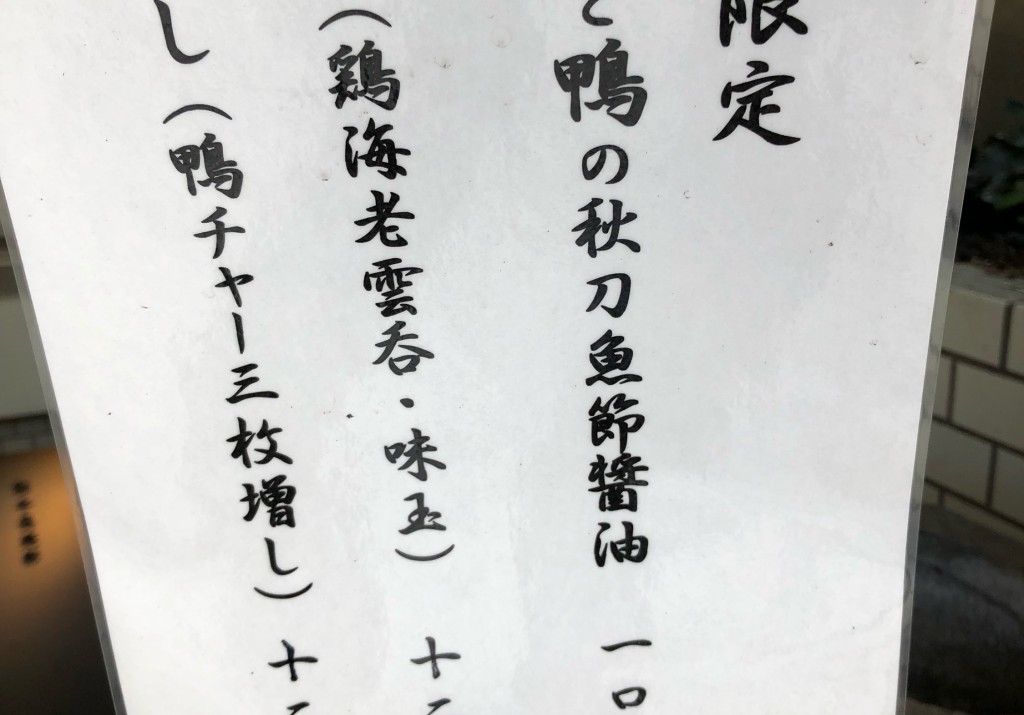 限定
と鴨の秋刀魚節醤油 一〇
（鶏海老雲呑・味玉） 十二
し（鴨チャー三枚増し） 十二